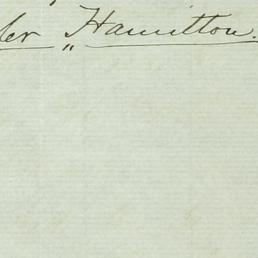 ler „Hamilton.